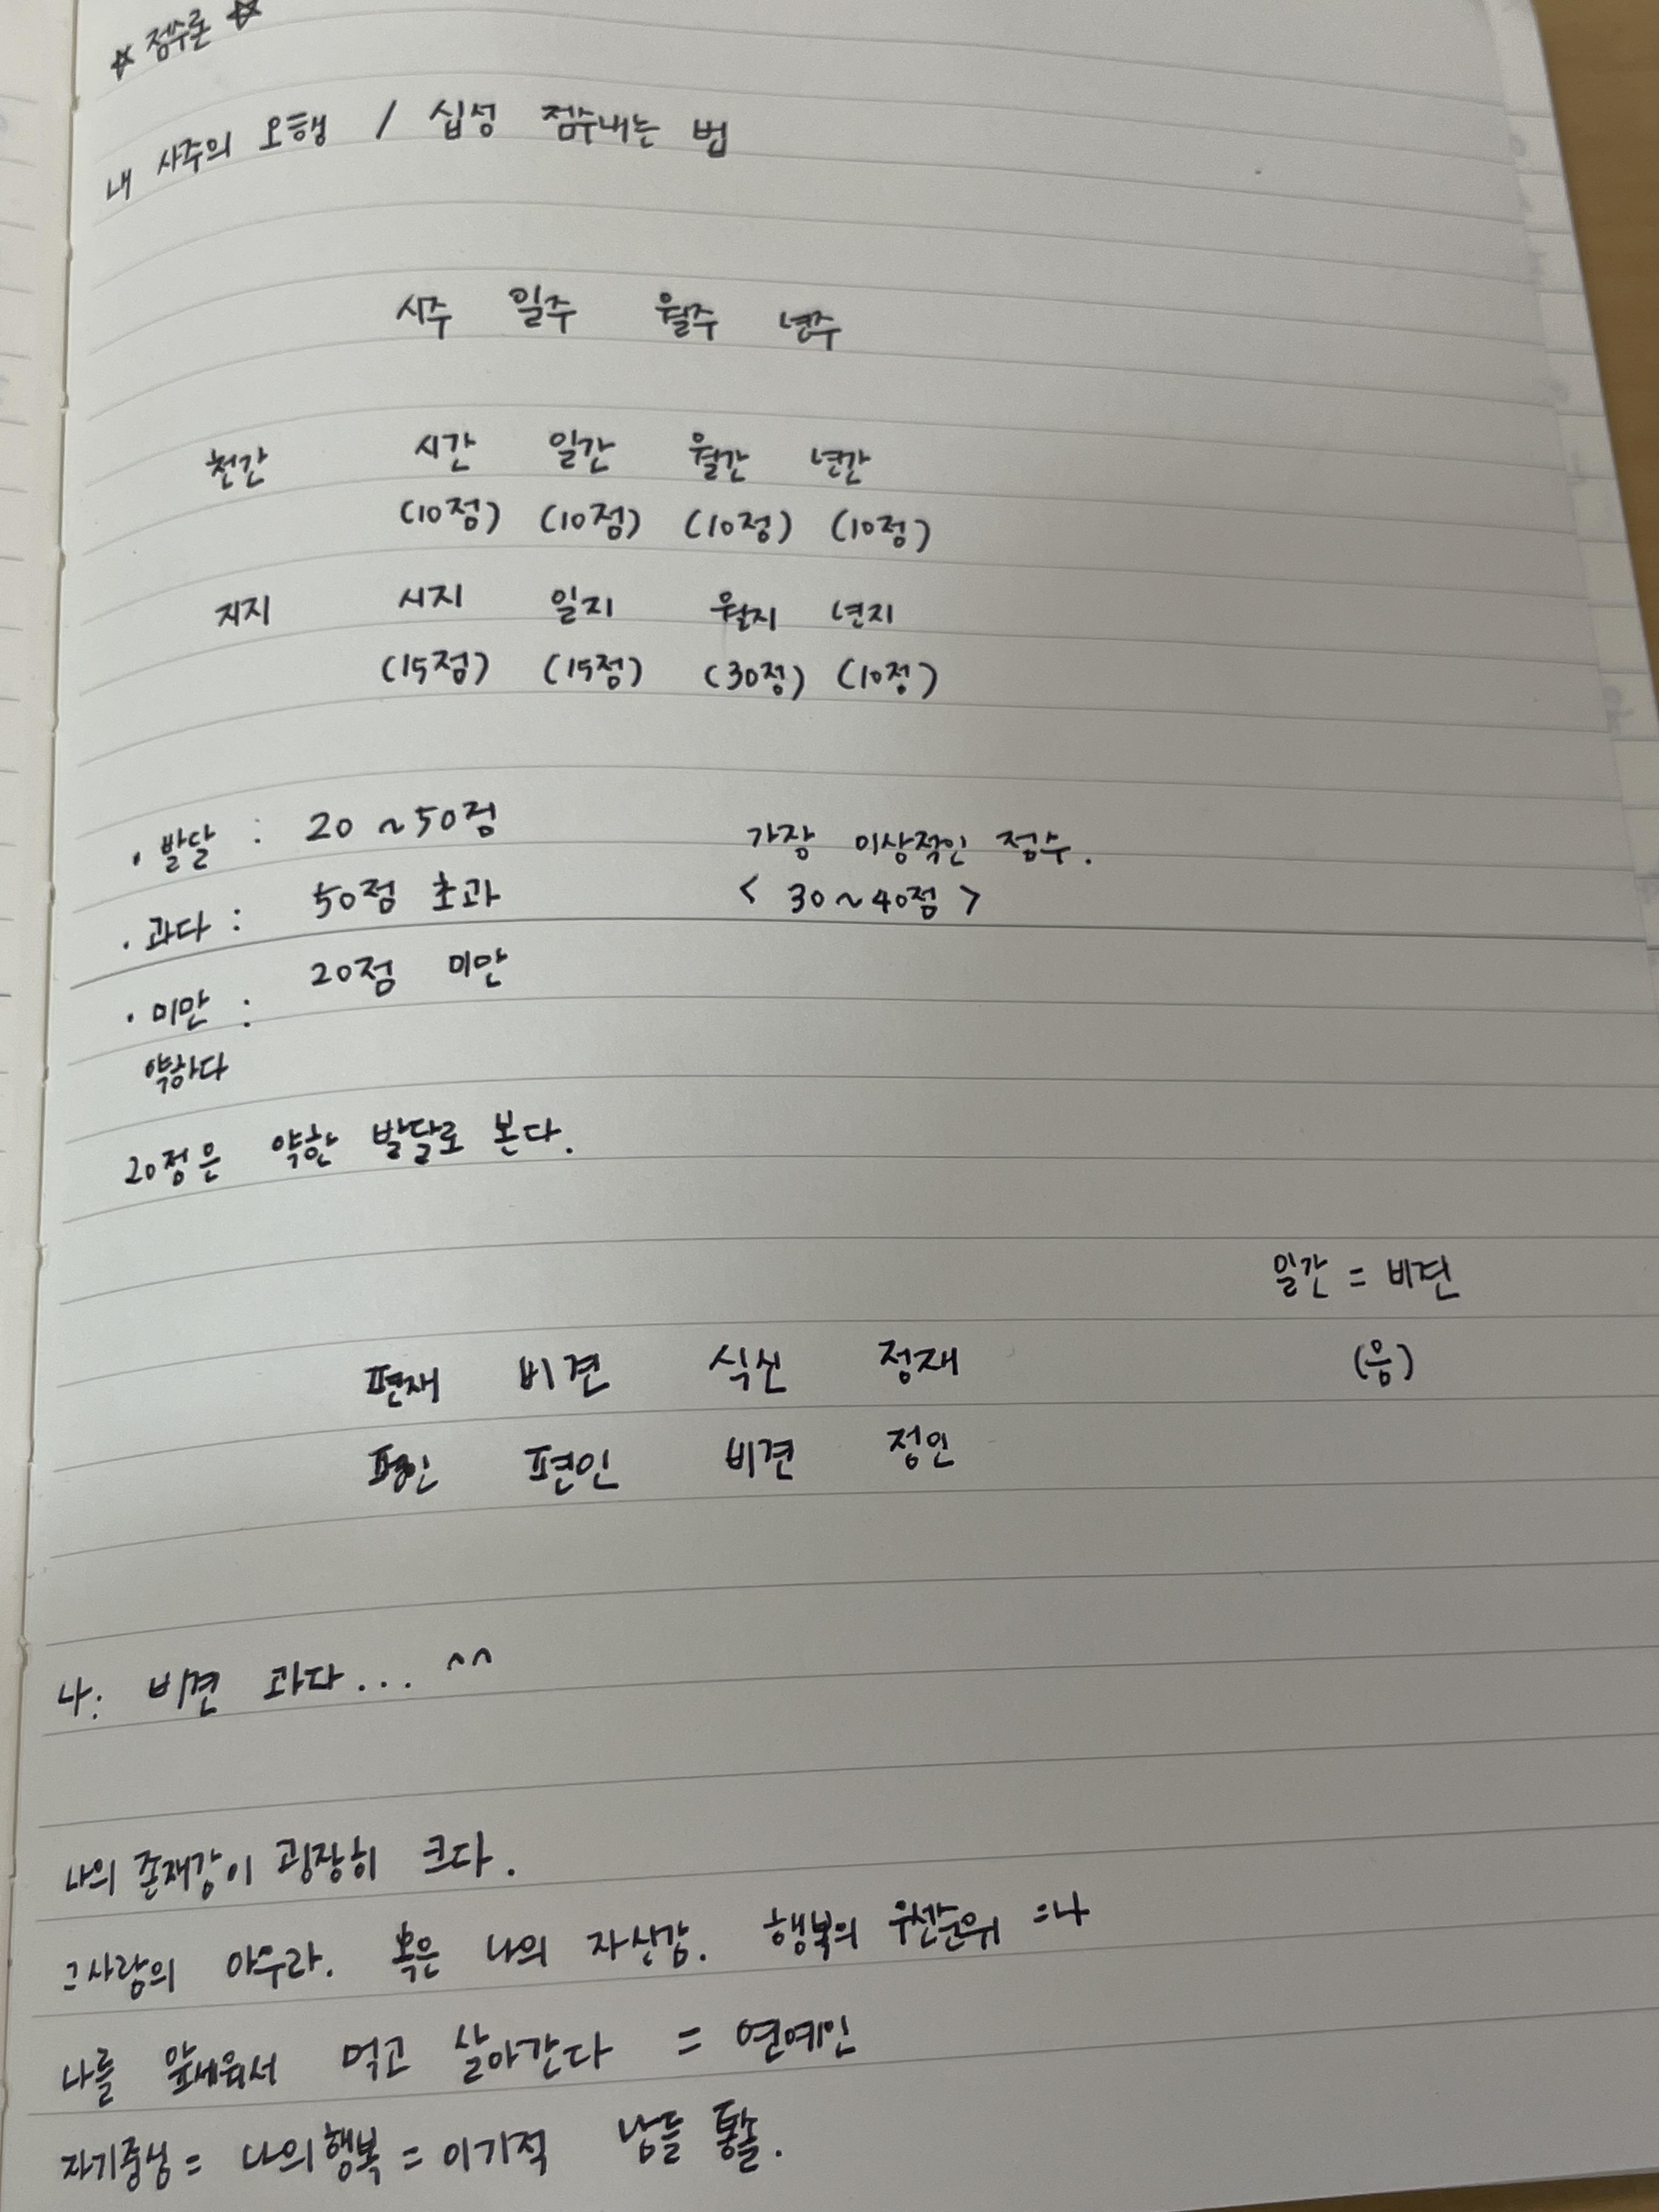 ☆ 점수론 ☆
내 사주의 오행 / 십성 점수내는 법
시주 일주 월주 년주
천간 시간 일간 월간 년간
(10점) (10점) (10점) (10점)
지지 시지 일지 월지 년지
(15점) (15점) (30점) (10점)
· 발달 : 20 ~ 50점 가장 이상적인 점수.
· 과다 : 50점 초과 < 30 ~ 40점 >
· 미만 : 20점 미만
약하다
20점은 약한 발달로 본다.
일간 = 비견
편재 비견 식신 정재 (음)
편인 편인 비견 정인
나: 비견 과다... ^^
나의 존재감이 굉장히 크다.
그사람의 아우라. 혹은 나의 자신감. 행복의 우선순위 = 나
나를 앞세워서 먹고 살아간다 = 연예인
자기중심 = 나의행복 = 이기적 남들